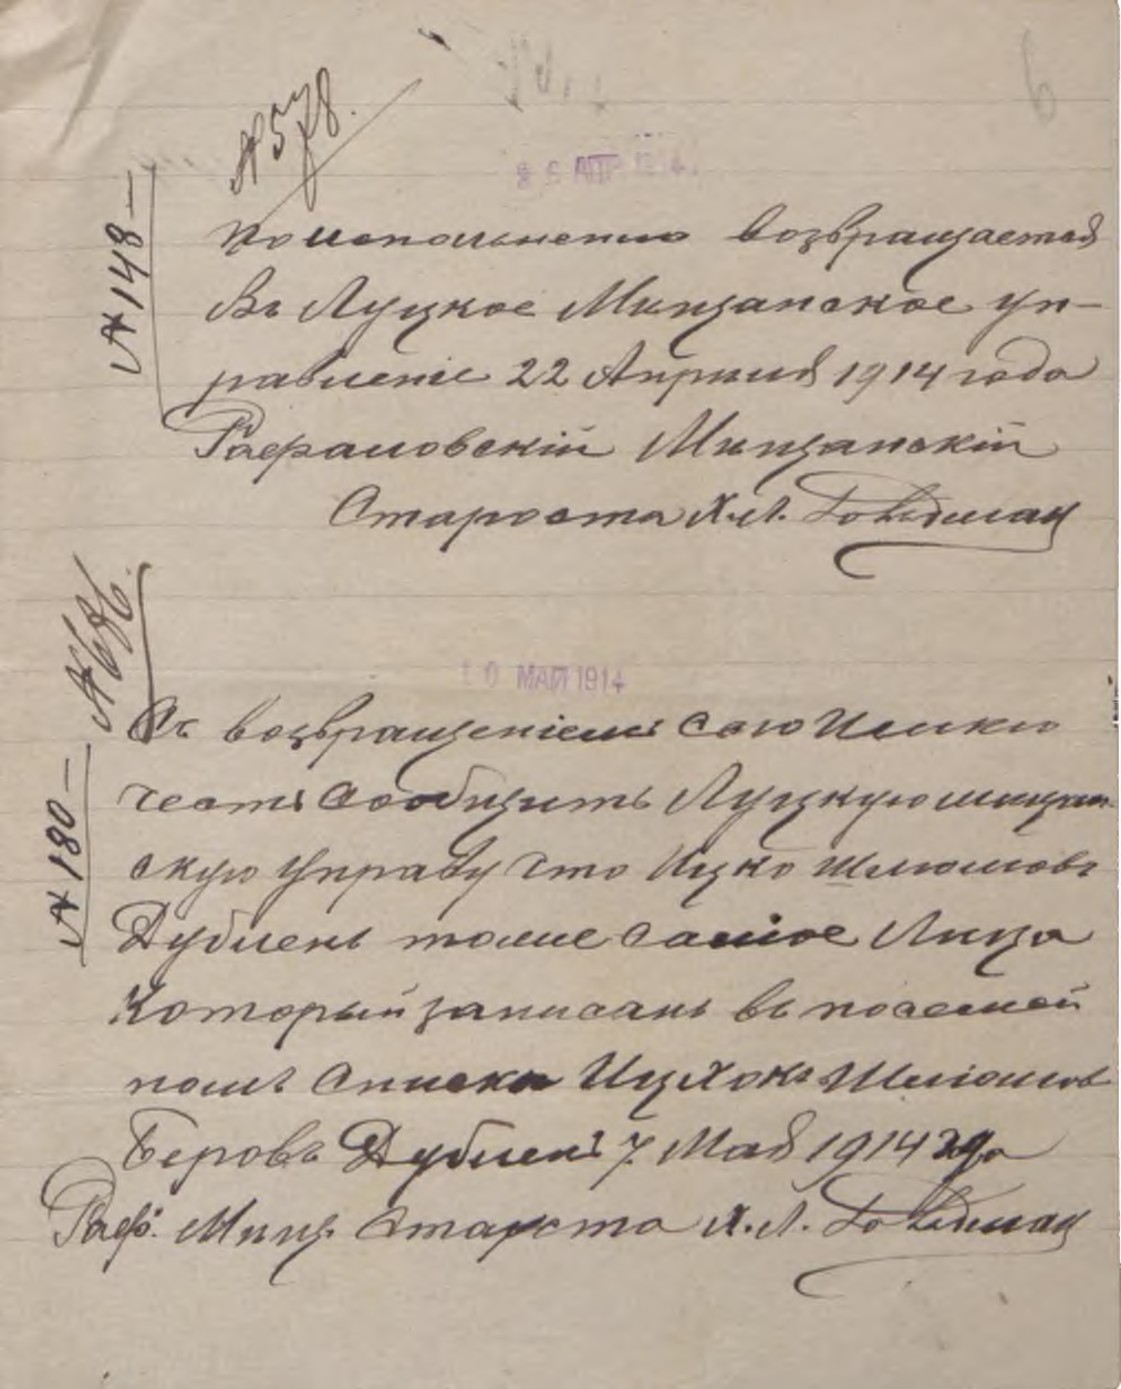 6
№ 578.
26 АПР 1914
№ 148 —
По исполнению возвращается
Въ Луцкое Мищанское уп-
равленіе 22 Апрыля 1914 года
Рафаловскій Мищанскій
Староста Х.Л. Гольдман
10 МАЙ 1914
№ 180 —
Съ возвращеніемъ сего Имию
честь сообщить Луцкую мищан
скую Управу что Ицко Шлиомовъ
Дубленъ тоже самое Лицо
Который записанъ въ посемей
номъ списки Ицхокъ Шлиомов
Беровъ Дубленъ 7 Мая 1914 года
Раф. Мищ. Староста Х.Л. Гольдман